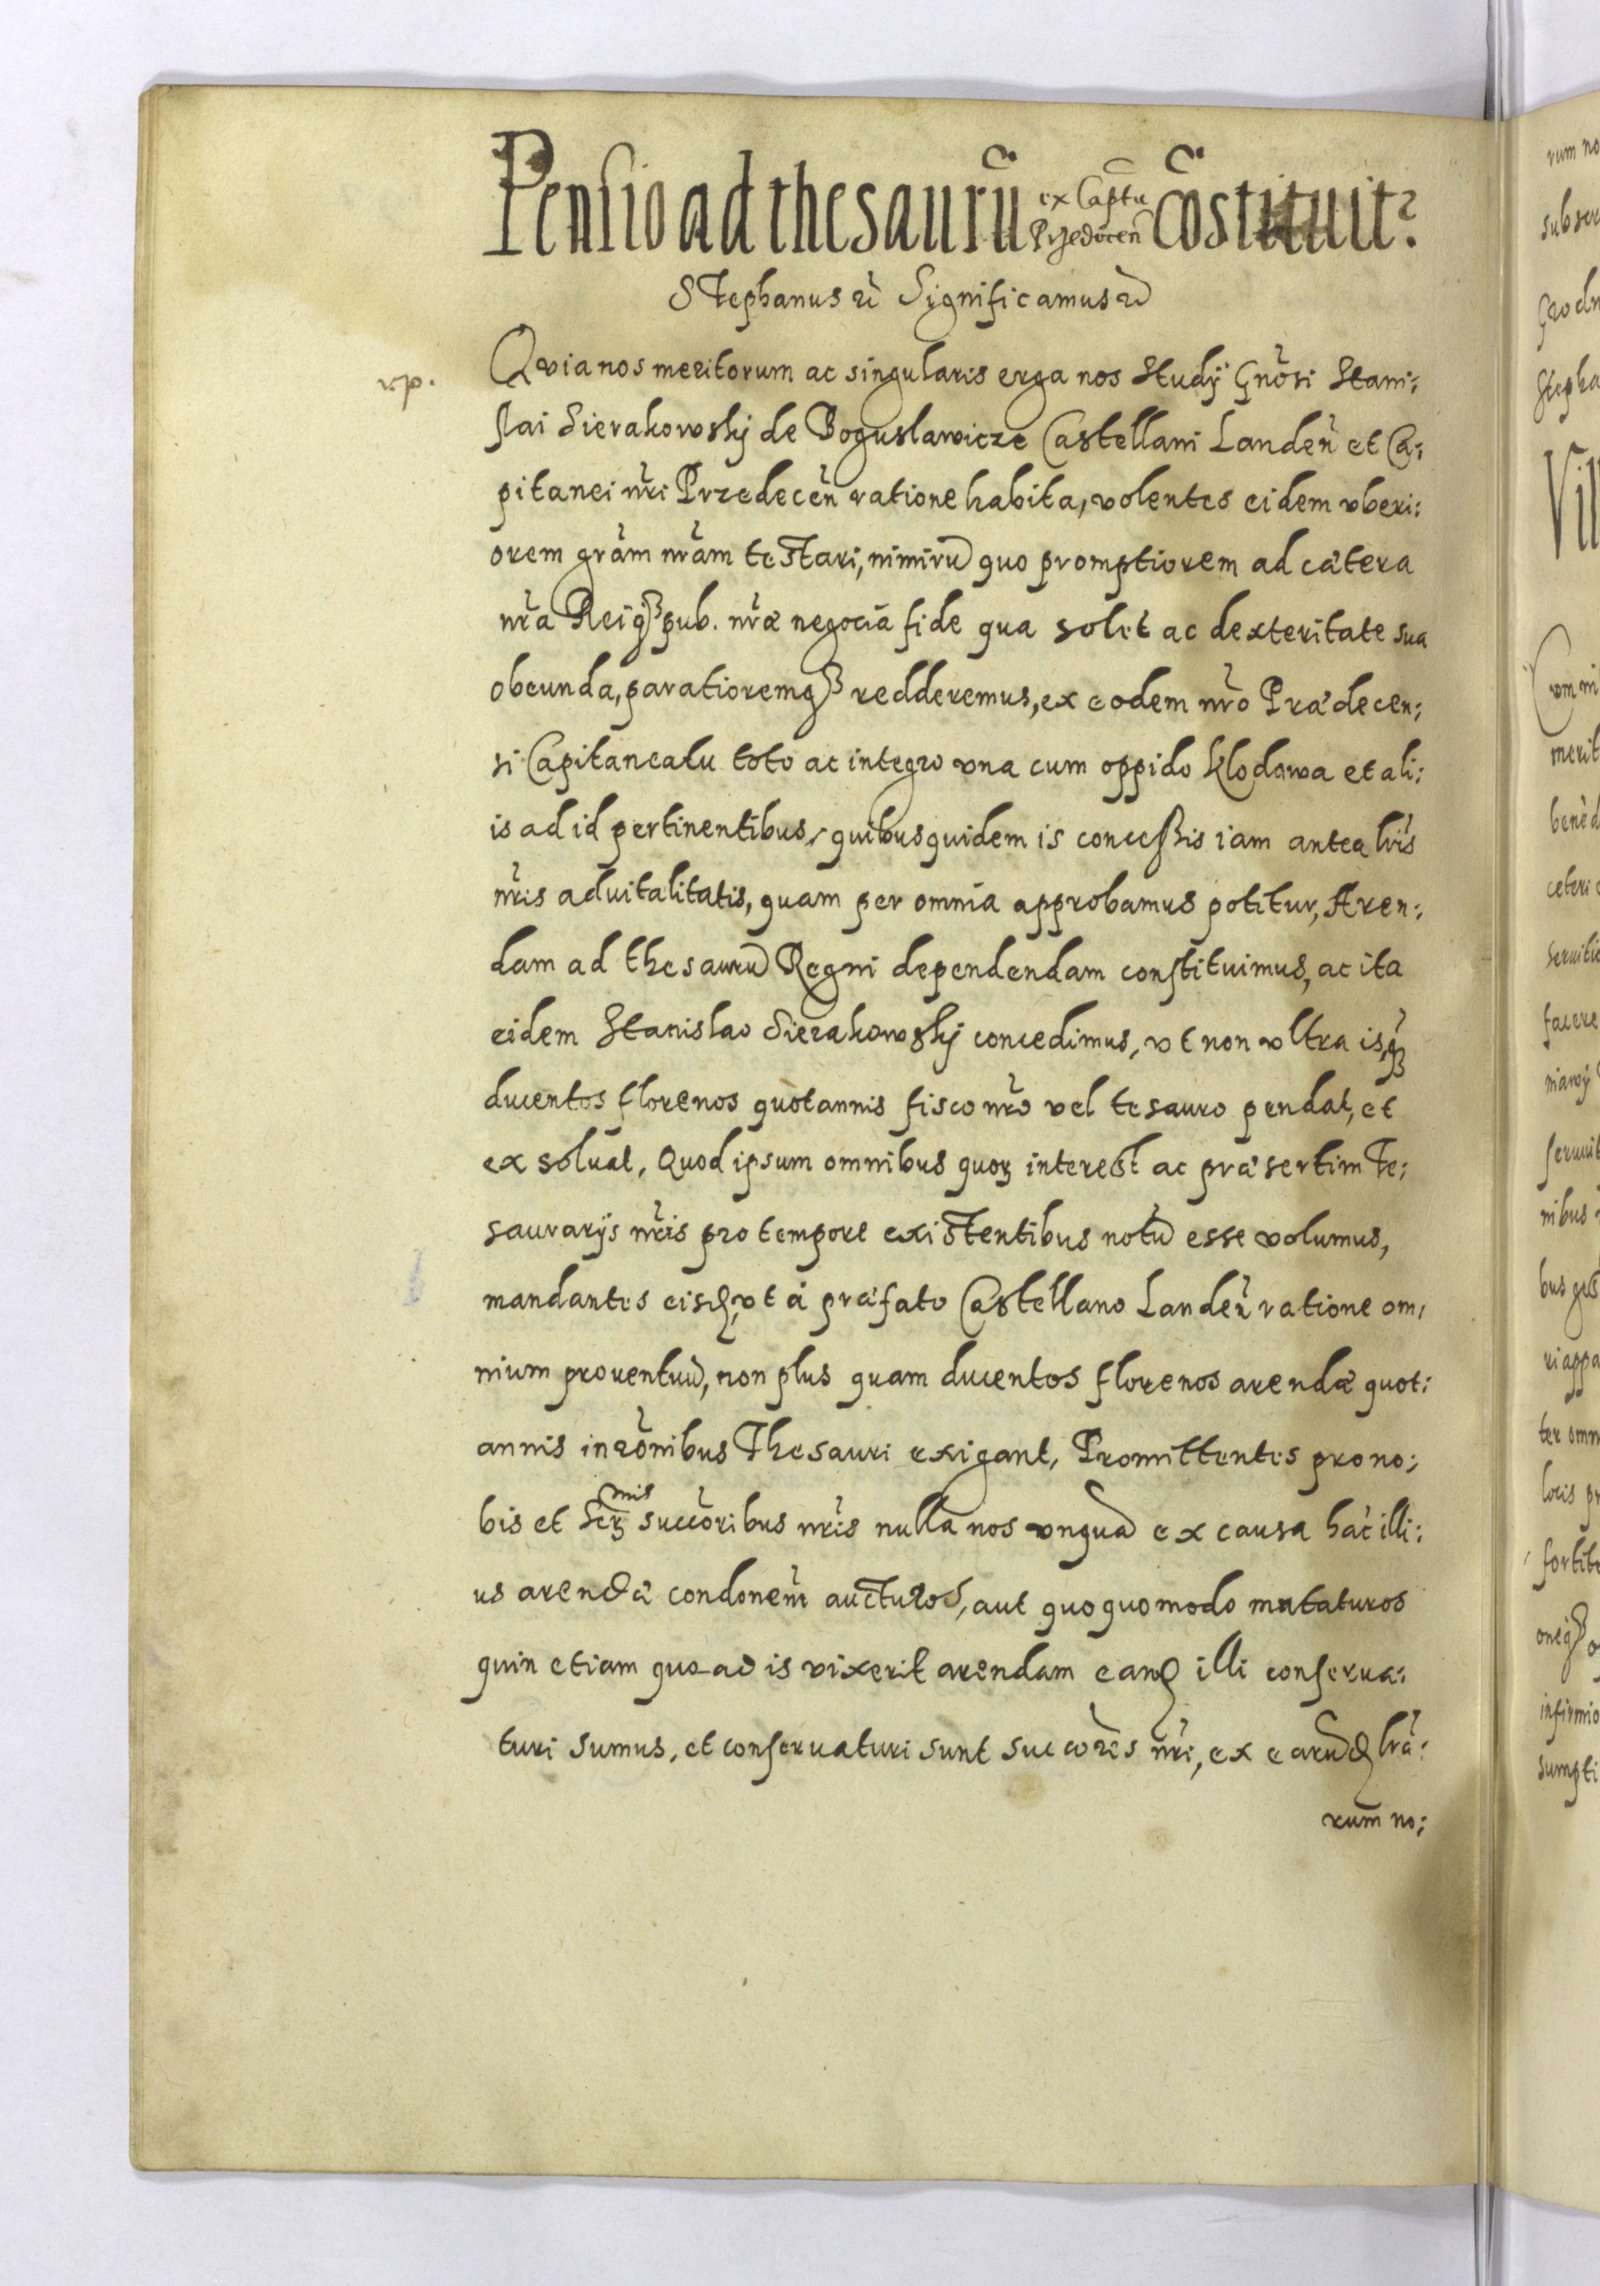 Pensio ad thesaurũ ex Captu Przedecen̄ cõstituit?
Stephanus &c Significamus &c
vp. Qvia nos meritorum ac singularis erga nos Studÿ Gnõsi Stani:
slai Sierakowskÿ de Boguslawicze Castellani Landeñ et Ca:
pitanei nr̃i Przedeceñ ratione habita, volentes eidem vberi:
orem grãm nr̃am testari, nimirũ quo promptiorem ad cætera
nr̃a Reiq3 pub. nr̃æ negocia fide qua solet ac dexteritate sua
obeunda, paratioremq3 redderemus, ex eodem nr̃o Prædecen:
si Capitaneatu toto ac integro vna cum oppido Klodawa et ali:
is ad id pertinentibus, quibus quidem is concessis iam antea lr̃is
nr̃is aduitalitatis, quam per omnia approbamus potitur, Aren:
dam ad thesaurũ Regni dependendam constituimus, ac ita
eidem Stanislao Sierakowskÿ concedimus, vt non vltra is, q̃3
ducentos florenos quotannis fisco nr̃o vel tesauro pendat, et
exsoluat, Quod ipsum omnibus quor̃ interest ac præsertim Te:
saurarÿs nr̃is pro tempore existentibus notũ esse volumus,
mandantes eisd, vt à præfato Castellano Landeñ ratione om,
nium prouentuũ, non plus quam ducentos florenos arendæ quot:
annis in rõnibus Thesauri exigant, Promittentes pro no:
bis et Ser̃mis succõribus nr̃is nulla nos vnquã ex causa hac illi:
us arendæ condonem̃ aucturos, aut quoquomodo mutaturos
quin etiam quoad is vixerit arendam eand illi conserua:
turi sumus, et conseruaturi sunt succões nr̃i, ex earũd lr̃a:
rum no: